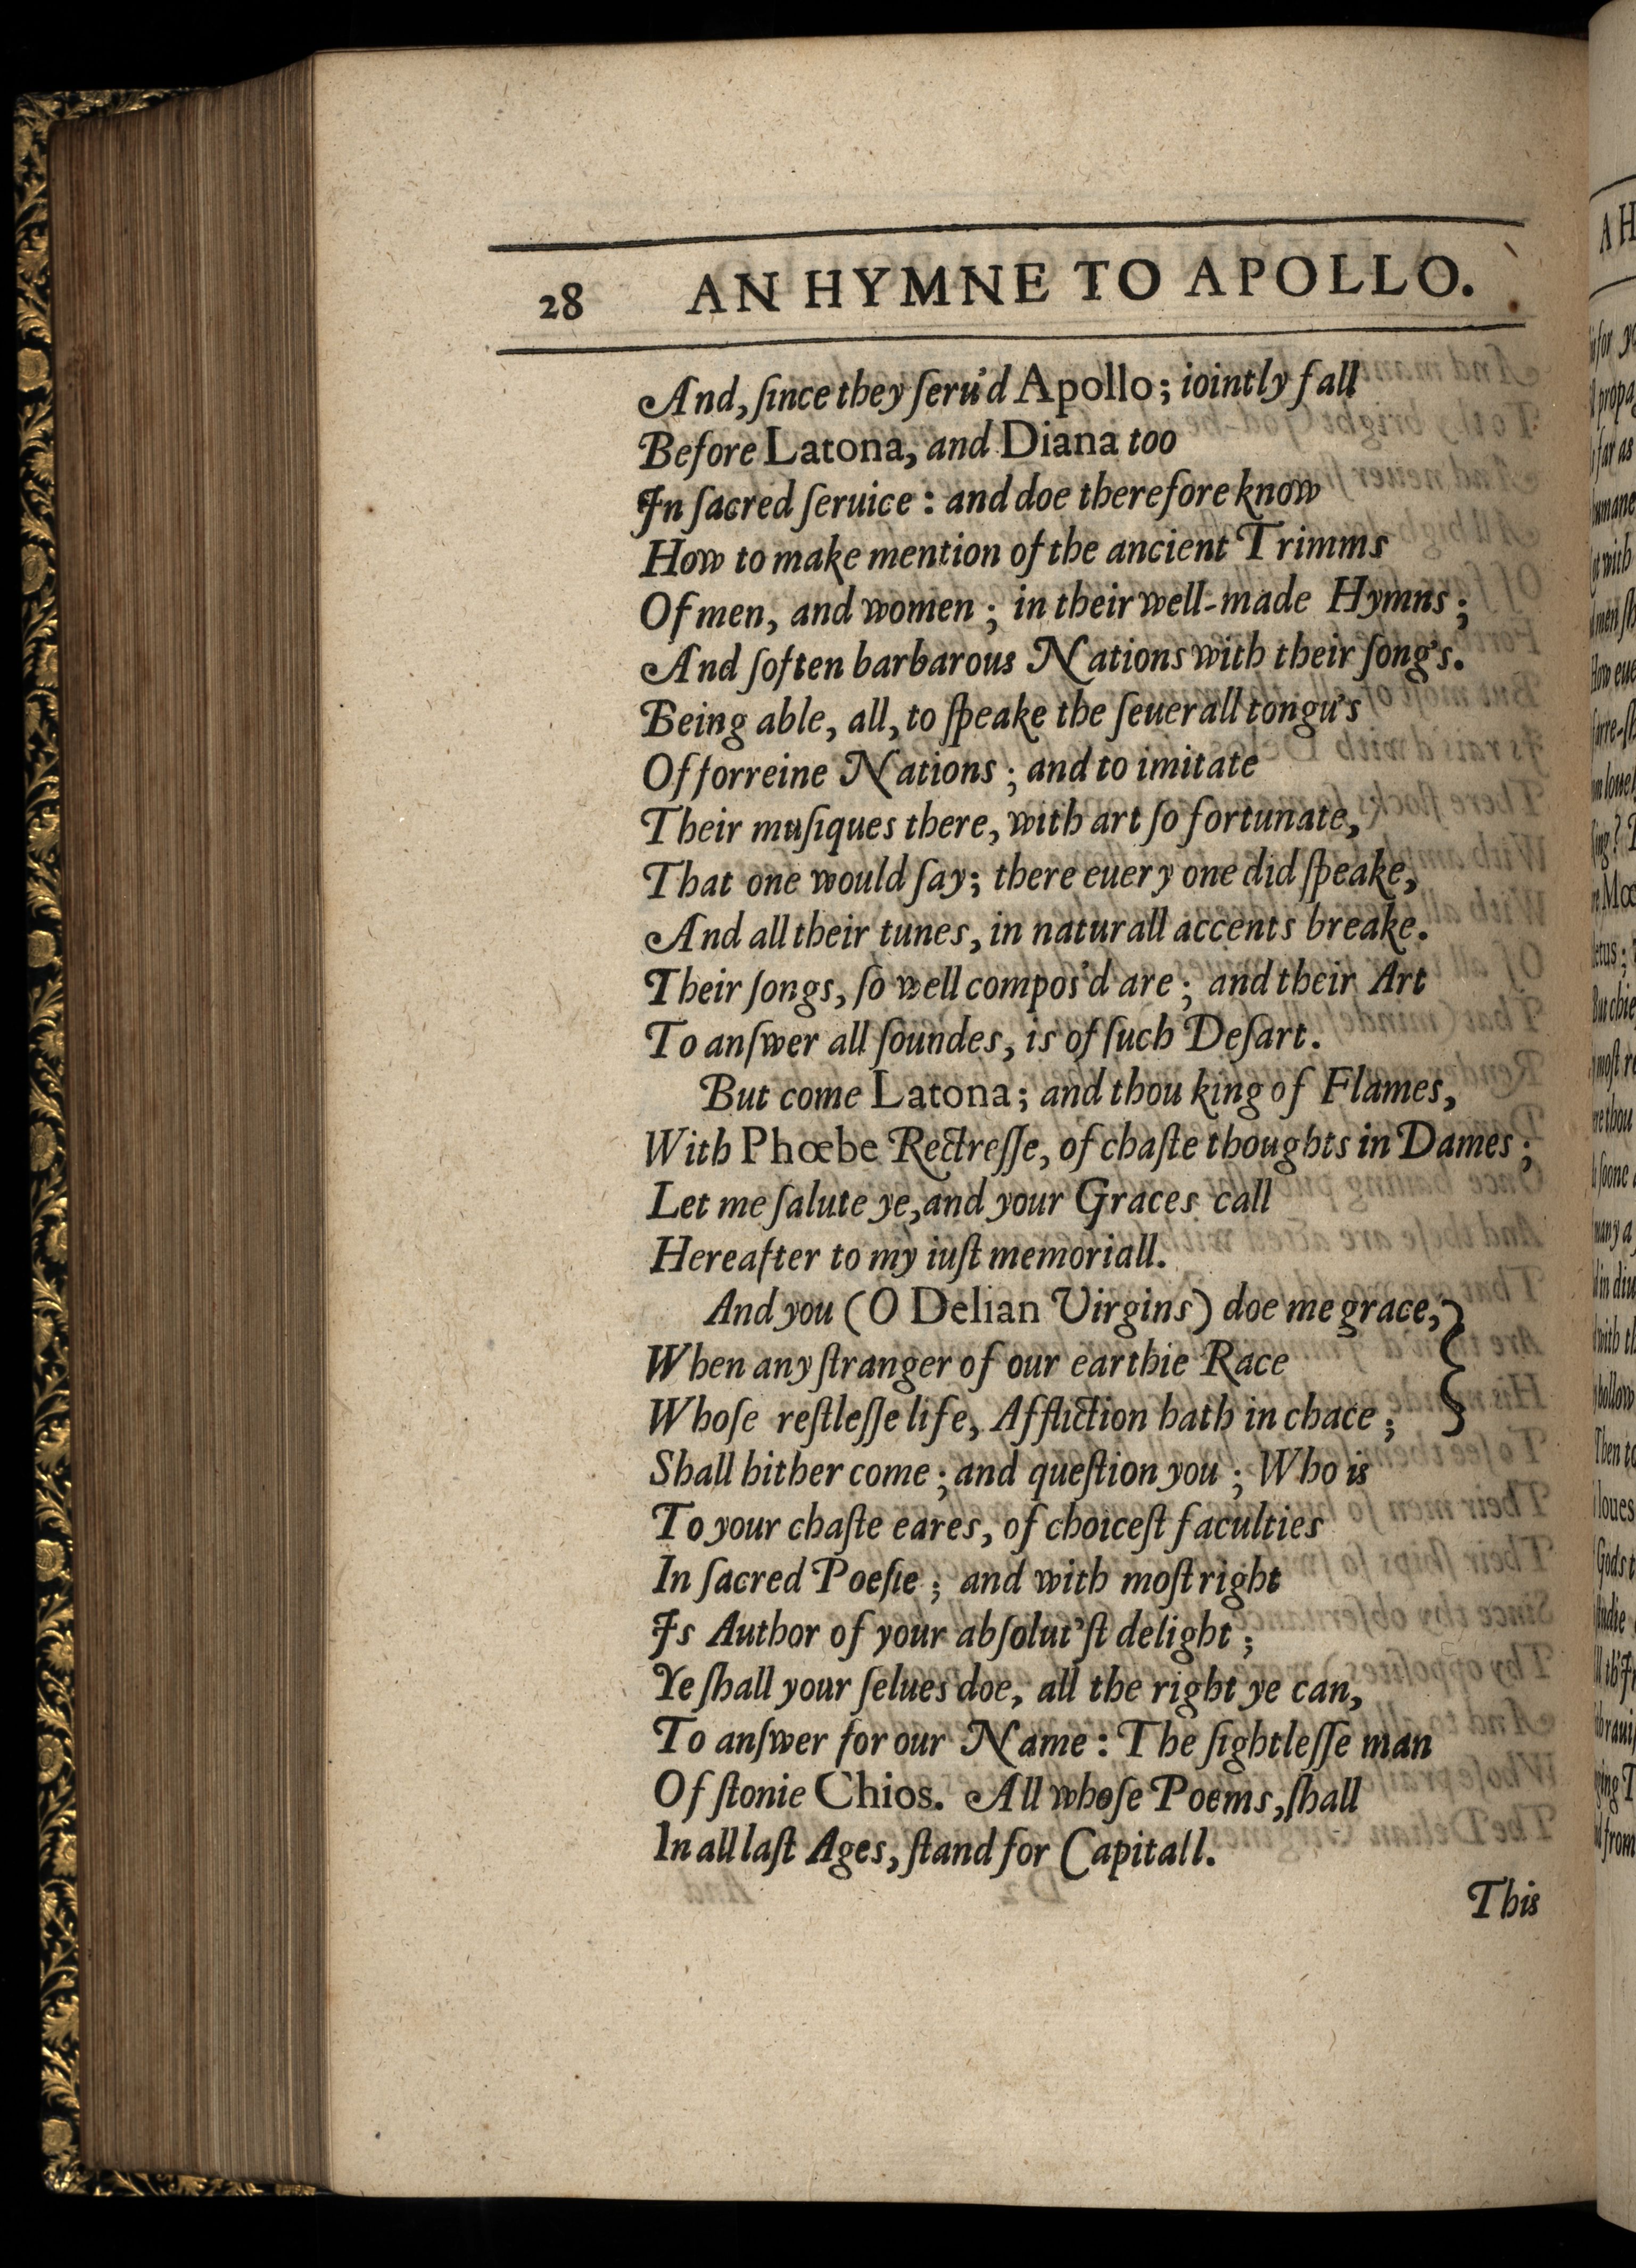 28 AN HYMNE TO APOLLO.
And, ſince they ſeru'd Apollo; iointly fall
Before Latona, and Diana too
In ſacred ſeruice: and doe therefore know
How to make mention of the ancient Trimms
Of men, and women; in their well-made Hymns;
And ſoften barbarous Nations with their ſong's.
Being able, all, to ſpeake the ſeuerall tongu's
Of forreine Nations; and to imitate
Their muſiques there, with art ſo fortunate,
That one would ſay; there euery one did ſpeake,
And all their tunes, in naturall accents breake.
Their ſongs, ſo well compos'd are; and their Art
To anſwer all ſoundes, is of ſuch Deſart.
But come Latona; and thou king of Flames,
With Phœbe Rectreſſe, of chaſte thoughts in Dames;
Let me ſalute ye, and your Graces call
Hereafter to my iuſt memoriall.
And you (O Delian Virgins) doe me grace,
When any ſtranger of our earthie Race
Whoſe reſtleſſe life, Affliction hath in chace;
Shall hither come; and queſtion you; Who is
To your chaſte eares, of choiceſt faculties
In ſacred Poeſie; and with moſt right
Is Author of your abſolut'ſt delight;
Ye ſhall your ſelues doe, all the right ye can,
To anſwer for our Name: The ſightleſſe man
Of ſtonie Chios. All whoſe Poems, ſhall
In all laſt Ages, ſtand for Capitall.
This